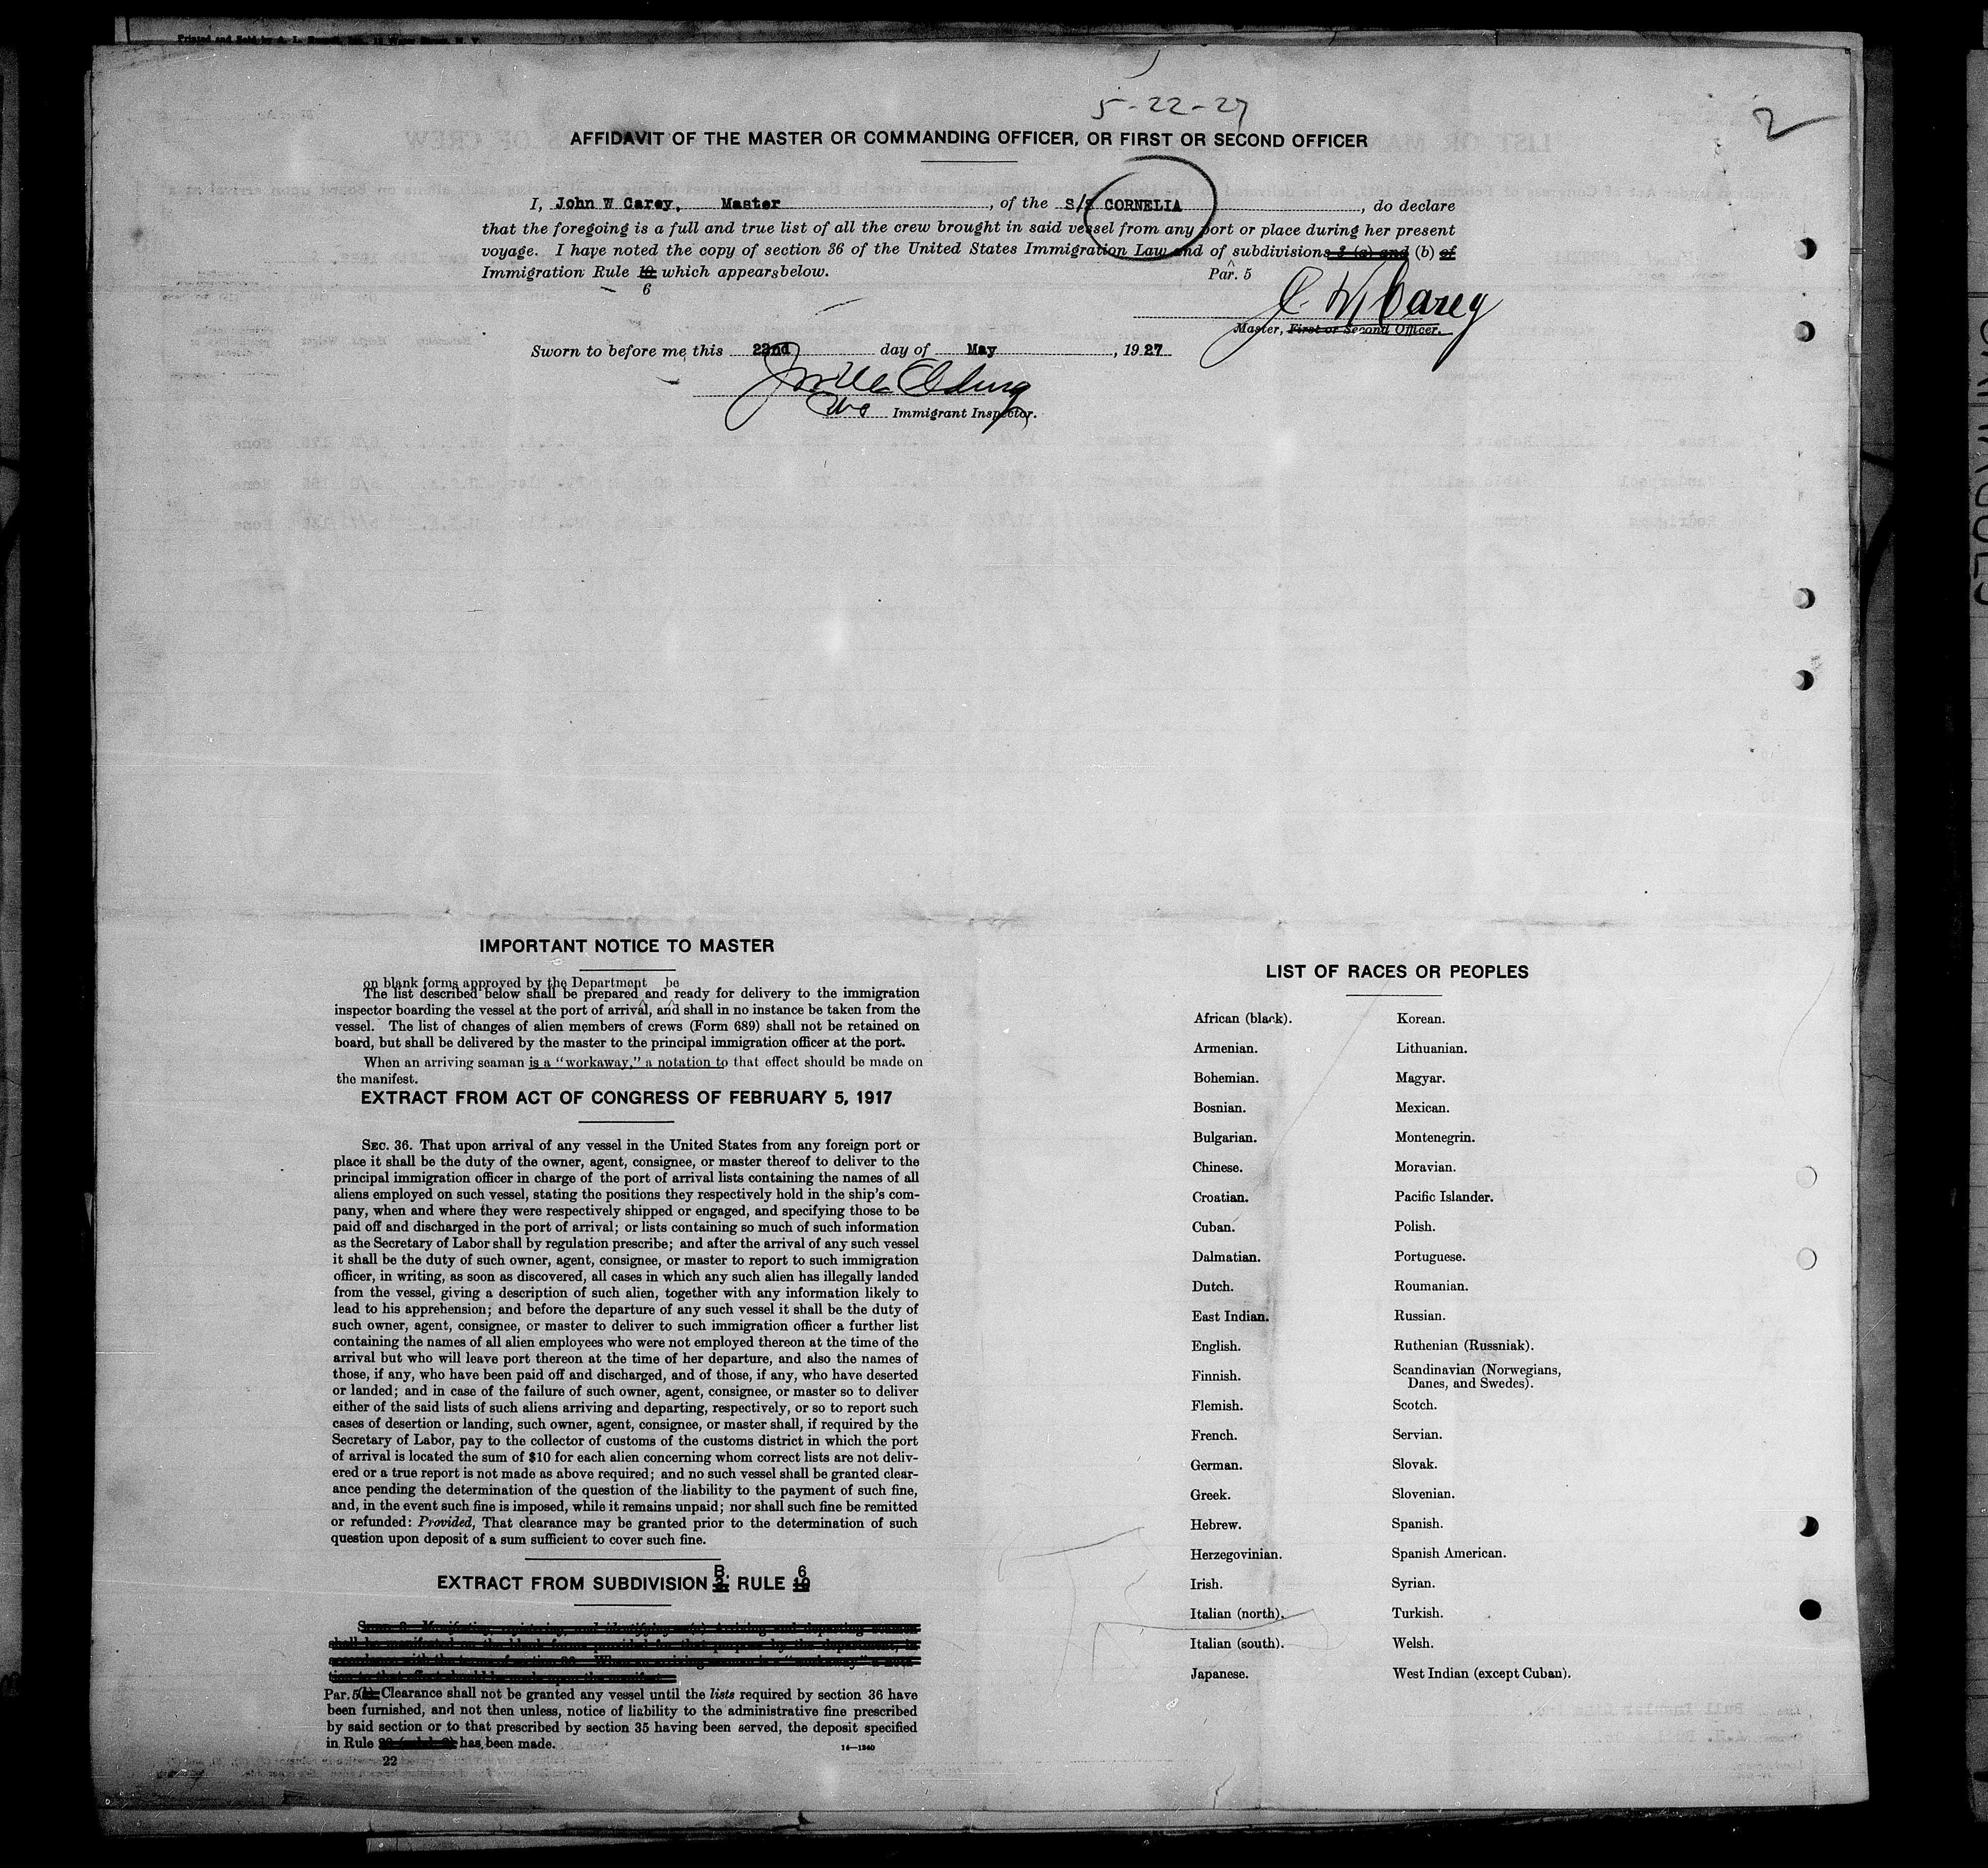 5-22-27
2
AFFIDAVIT OF THE MASTER OR COMMANDING OFFICER, OR FIRST OR SECOND OFFICER
I, John W Carey, Master, of the S/S CORNELIA, do declare
that the foregoing is a full and true list of all the crew brought in said vessel from any port or place during her present
voyage. I have noted the copy of section 36 of the United States Immigration Law and of subdivisions 3 (a) and (b) of
Par. 5
Immigration Rule 10 which appears below.
6
J. W Carey
Master, First or Second Officer.
Sworn to before me this 22nd day of May, 1927
Immigrant Inspector.
IMPORTANT NOTICE TO MASTER
on blank forms approved by the Department be
The list described below shall be prepared and ready for delivery to the immigration
inspector boarding the vessel at the port of arrival, and shall in no instance be taken from the
vessel. The list of changes of alien members of crews (Form 689) shall not be retained on
board, but shall be delivered by the master to the principal immigration officer at the port.
When an arriving seaman is a "workaway," a notation to that effect should be made on
the manifest.
EXTRACT FROM ACT OF CONGRESS OF FEBRUARY 5, 1917
SEC. 36. That upon arrival of any vessel in the United States from any foreign port or
place it shall be the duty of the owner, agent, consignee, or master thereof to deliver to the
principal immigration officer in charge of the port of arrival lists containing the names of all
aliens employed on such vessel, stating the positions they respectively hold in the ship's com-
pany, when and where they were respectively shipped or engaged, and specifying those to be
paid off and discharged in the port of arrival; or lists containing so much of such information
as the Secretary of Labor shall by regulation prescribe; and after the arrival of any such vessel
it shall be the duty of such owner, agent, consignee, or master to report to such immigration
officer, in writing, as soon as discovered, all cases in which any such alien has illegally landed
from the vessel, giving a description of such alien, together with any information likely to
lead to his apprehension; and before the departure of any such vessel it shall be the duty of
such owner, agent, consignee, or master to deliver to such immigration officer a further list
containing the names of all alien employees who were not employed thereon at the time of the
arrival but who will leave port thereon at the time of her departure, and also the names of
those, if any, who have been paid off and discharged, and of those, if any, who have deserted
or landed; and in case of the failure of such owner, agent, consignee, or master so to deliver
either of the said lists of such aliens arriving and departing, respectively, or so to report such
cases of desertion or landing, such owner, agent, consignee, or master shall, if required by the
Secretary of Labor, pay to the collector of customs of the customs district in which the port
of arrival is located the sum of $10 for each alien concerning whom correct lists are not deliv-
ered or a true report is not made as above required; and no such vessel shall be granted clear-
ance pending the determination of the question of the liability to the payment of such fine,
and, in the event such fine is imposed, while it remains unpaid; nor shall such fine be remitted
or refunded: Provided, That clearance may be granted prior to the determination of such
question upon deposit of a sum sufficient to cover such fine.
B. 6
EXTRACT FROM SUBDIVISION 3. RULE 10
Par. 5 Clearance shall not be granted any vessel until the lists required by section 36 have
been furnished, and not then unless, notice of liability to the administrative fine prescribed
by said section or to that prescribed by section 35 having been served, the deposit specified
in Rule has been made.
22
14—1240
LIST OF RACES OR PEOPLES
African (black).
Armenian.
Bohemian.
Bosnian.
Bulgarian.
Chinese.
Croatian.
Cuban.
Dalmatian.
Dutch.
East Indian.
English.
Finnish.
Flemish.
French.
German.
Greek.
Hebrew.
Herzegovinian.
Irish.
Italian (north).
Italian (south).
Japanese.
Korean.
Lithuanian.
Magyar.
Mexican.
Montenegrin.
Moravian.
Pacific Islander.
Polish.
Portuguese.
Roumanian.
Russian.
Ruthenian (Russniak).
Scandinavian (Norwegians,
Danes, and Swedes).
Scotch.
Servian.
Slovak.
Slovenian.
Spanish.
Spanish American.
Syrian.
Turkish.
Welsh.
West Indian (except Cuban).